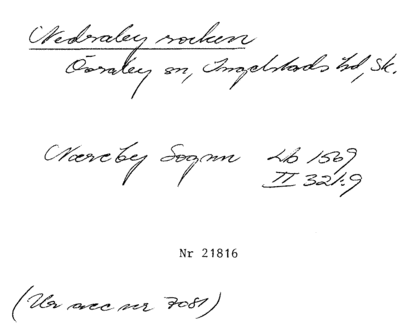 Nedraby socken
Övraby sn, Ingelstads hd, Sk.
Næreby Sognn Lb 1569
II 321:9
Nr 21816
(Ur acc nr 7081)